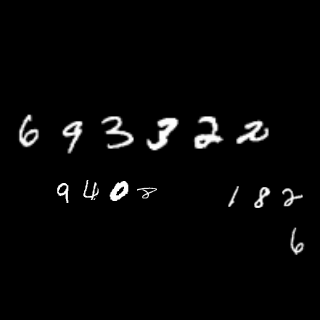 693322
9408 182
6